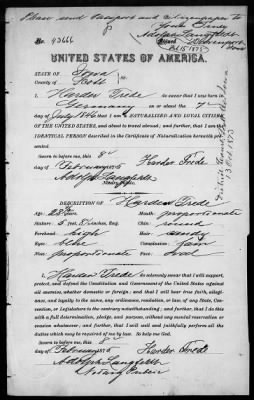 Please send Passport and
No. 43666
Issued
Davenport
Iowa
Feb 15 1875
UNITED STATES OF AMERICA.
STATE OF Iowa
COUNTY OF Scott
I, Harder Frede do swear that I was born in
Germany on or about the 7th
day of July 1846; that I am a NATURALIZED AND LOYAL CITIZEN OF
THE UNITED STATES, and about to travel abroad; and further, that I am the
IDENTICAL PERSON described in the Certificate of Naturalization herewith presented.
Sworn to before me, this 8th
day of February 1875 Harder Frede
Adolph Langfeldt
Notary Public.
DESCRIPTION OF Harder Frede
Age: 28 Mouth: proportionate
Stature: 5 feet, inches, Eng. Chin: round
Forehead: high Hair: sandy
Eyes: blue Complexion: fair
Nose: proportionate Face: oval
I, Harder Frede do solemnly swear that I will support,
protect, and defend the Constitution and Government of the United States against
all enemies, whether domestic or foreign; and that I will bear true faith, allegiance,
and loyalty to the same, any ordinance, resolution, or law of any State, Convention,
or Legislature to the contrary notwithstanding; and further, that I do this
with a full determination, pledge, and purpose, without any mental reservation or
evasion whatsoever; and further, that I will well and faithfully perform all the
duties which may be required of me by law. So help me God.
Sworn to before me, this 8th
day of February 1875 Harder Frede
Adolph Langfeldt
Notary Public